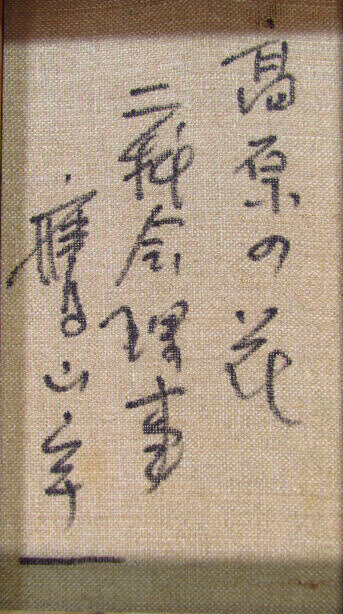 高原の花
二科会理事
鷹山宇一